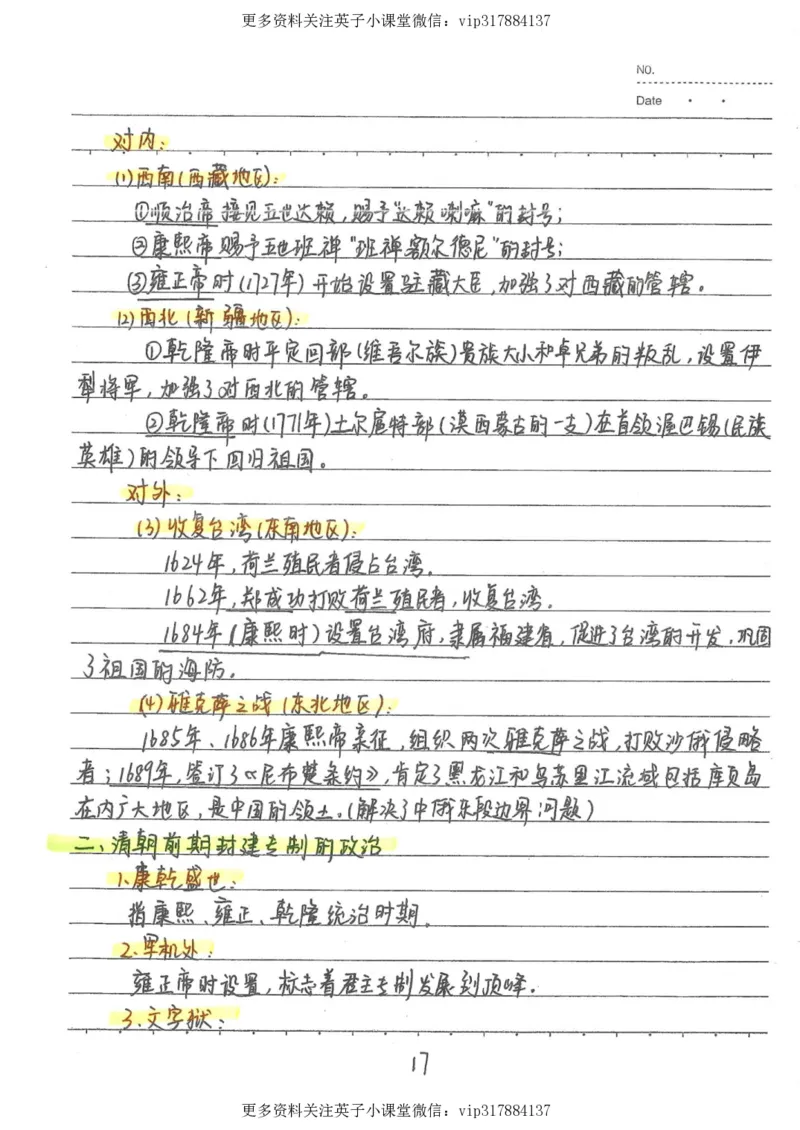 更多资料关注英子小课堂微信：vip317884137
NO.
Date
对内：
(1)西南(西藏地区)：
①顺治帝接见五世达赖，赐予"达赖喇嘛"的封号；
②康熙帝赐予五世班禅"班禅额尔德尼"的封号；
③雍正帝时(1727年)开始设置驻藏大臣，加强了对西藏的管辖。
(2)西北(新疆地区)：
①乾隆帝时平定回部(维吾尔族)贵族大小和卓兄弟的叛乱，设置伊
犁将军，加强了对西北的管辖。
②乾隆帝时(1771年)土尔扈特部(漠西蒙古的一支)在首领渥巴锡(民族
英雄)的领导下回归祖国。
对外：
(3)收复台湾(东南地区)：
1624年，荷兰殖民者侵占台湾。
1662年，郑成功打败荷兰殖民者，收复台湾。
1684年(康熙时)设置台湾府，隶属福建省，促进了台湾的开发，巩固
了祖国的海防。
(4)雅克萨之战(东北地区)：
1685年、1686年康熙帝亲征，组织两次雅克萨之战，打败沙俄侵略
者；1689年，签订了《尼布楚条约》，肯定了黑龙江和乌苏里江流域包括库页岛
在内广大地区，是中国的领土。(解决了中俄东段边界问题)
二、清朝前期封建专制的政治
1.康乾盛世：
指康熙、雍正、乾隆统治时期。
2.军机处：
雍正帝时设置，标志着君主专制发展到顶峰。
3.文字狱：
17
更多资料关注英子小课堂微信：vip317884137